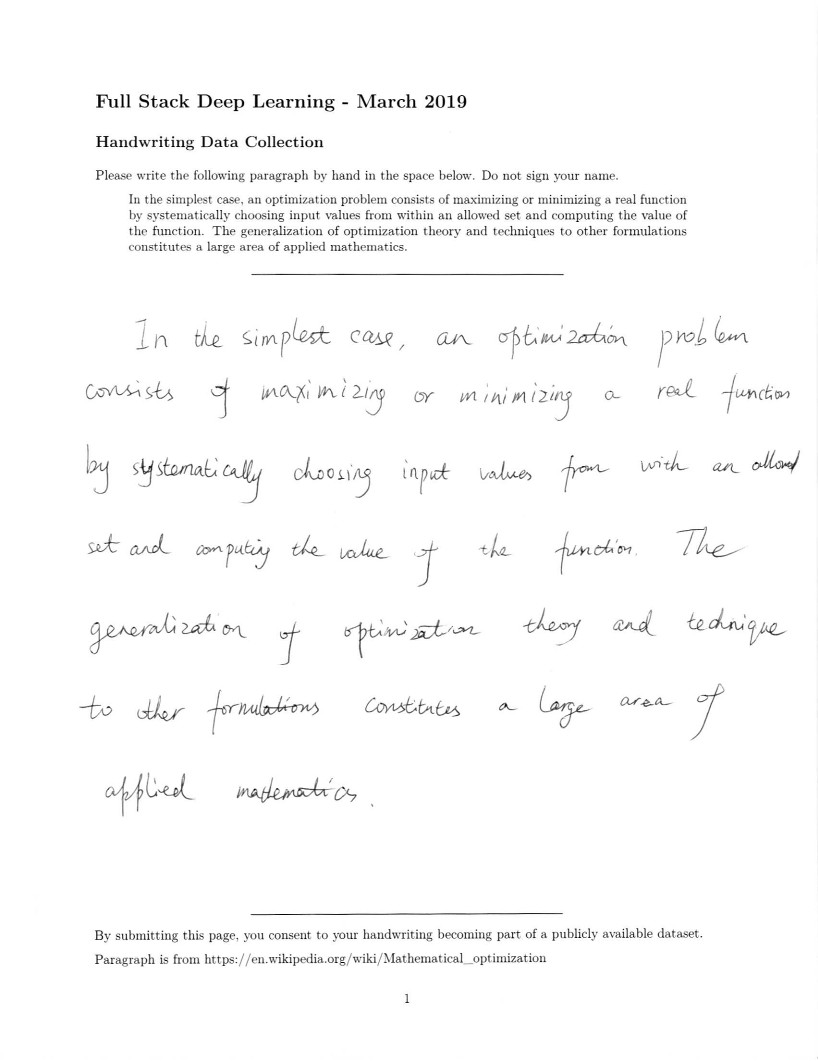 Full Stack Deep Learning - March 2019
Handwriting Data Collection
Please write the following paragraph by hand in the space below. Do not sign your name.
In the simplest case, an optimization problem consists of maximizing or minimizing a real function
by systematically choosing input values from within an allowed set and computing the value of
the function. The generalization of optimization theory and techniques to other formulations
constitutes a large area of applied mathematics.
In the simplest case, an optimization problem
consists of maximizing or minimizing a real function
by systematically choosing input values from with an allowed
set and computing the value of the function. The
generalization of optimization theory and technique
to other formulations constitutes a large area of
applied mathematics.
By submitting this page, you consent to your handwriting becoming part of a publicly available dataset.
Paragraph is from https://en.wikipedia.org/wiki/Mathematical_optimization
1